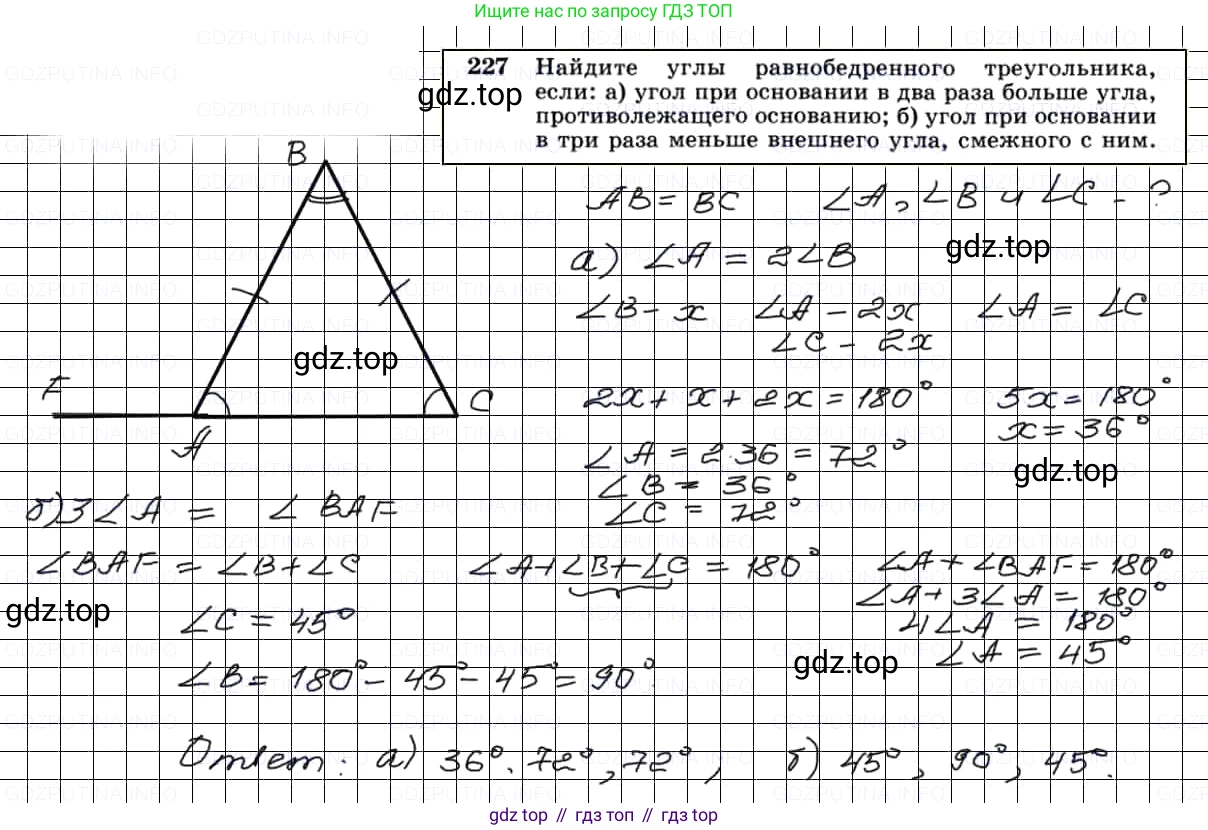 Ищите нас по запросу ГДЗ ТОП
227 Найдите углы равнобедренного треугольника,
если: а) угол при основании в два раза больше угла,
противолежащего основанию; б) угол при основании
в три раза меньше внешнего угла, смежного с ним.
gdz.top
B
AB = BC ∠A, ∠B и ∠C - ?
gdz.top
а) ∠A = 2∠B
∠B - x ∠A - 2x ∠A = ∠C
∠C - 2x
gdz.top
F
A
C
2x + x + 2x = 180° 5x = 180°
x = 36°
∠A = 2·36 = 72°
gdz.top
∠B = 36°
∠C = 72°
б) 3∠A = ∠BAF
∠BAF = ∠B + ∠C ∠A + ∠B + ∠C = 180° ∠A + ∠BAF = 180°
∠A + 3∠A = 180°
gdz.top
∠C = 45° 4∠A = 180°
∠A = 45°
gdz.top
∠B = 180° - 45° - 45° = 90°
Ответ: а) 36°. 72°, 72°, б) 45°, 90°, 45°.
gdz top // гдз топ // gdz top
GDZPUTINA.INFO